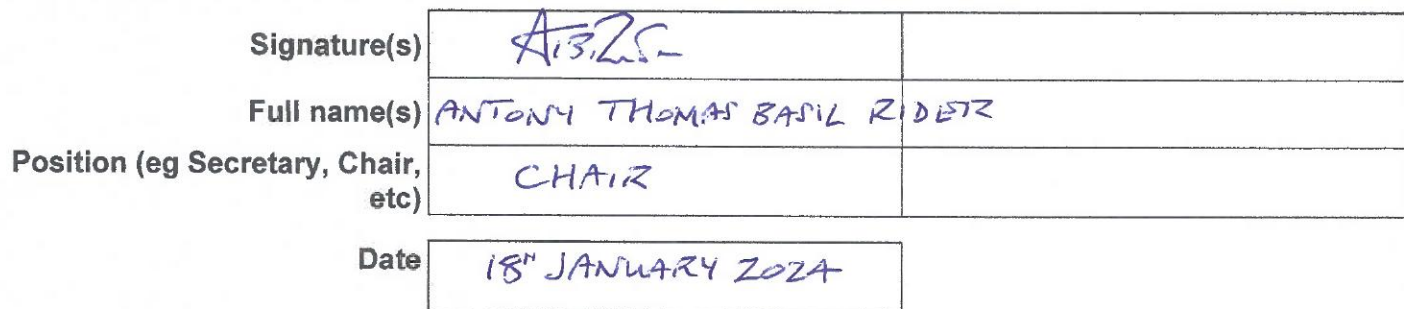 Signature(s)
Full name(s) ANTONY THOMAS BASIL RIDER
Position (eg Secretary, Chair, etc) CHAIR
Date 18" JANUARY 2024